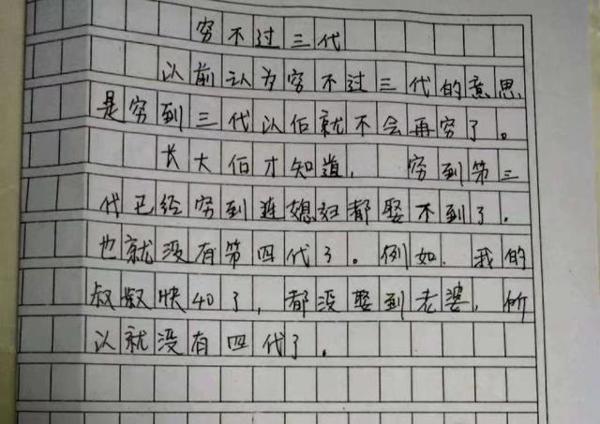 穷不过三代
以前认为穷不过三代的意思
是穷到三代以后就不会再穷了。
长大后才知道, 穷到第三
代已经穷到连媳妇都娶不到了。
也就没有第四代了。例如,我的
叔叔快40了,都没娶到老婆,所
以就没有四代了。